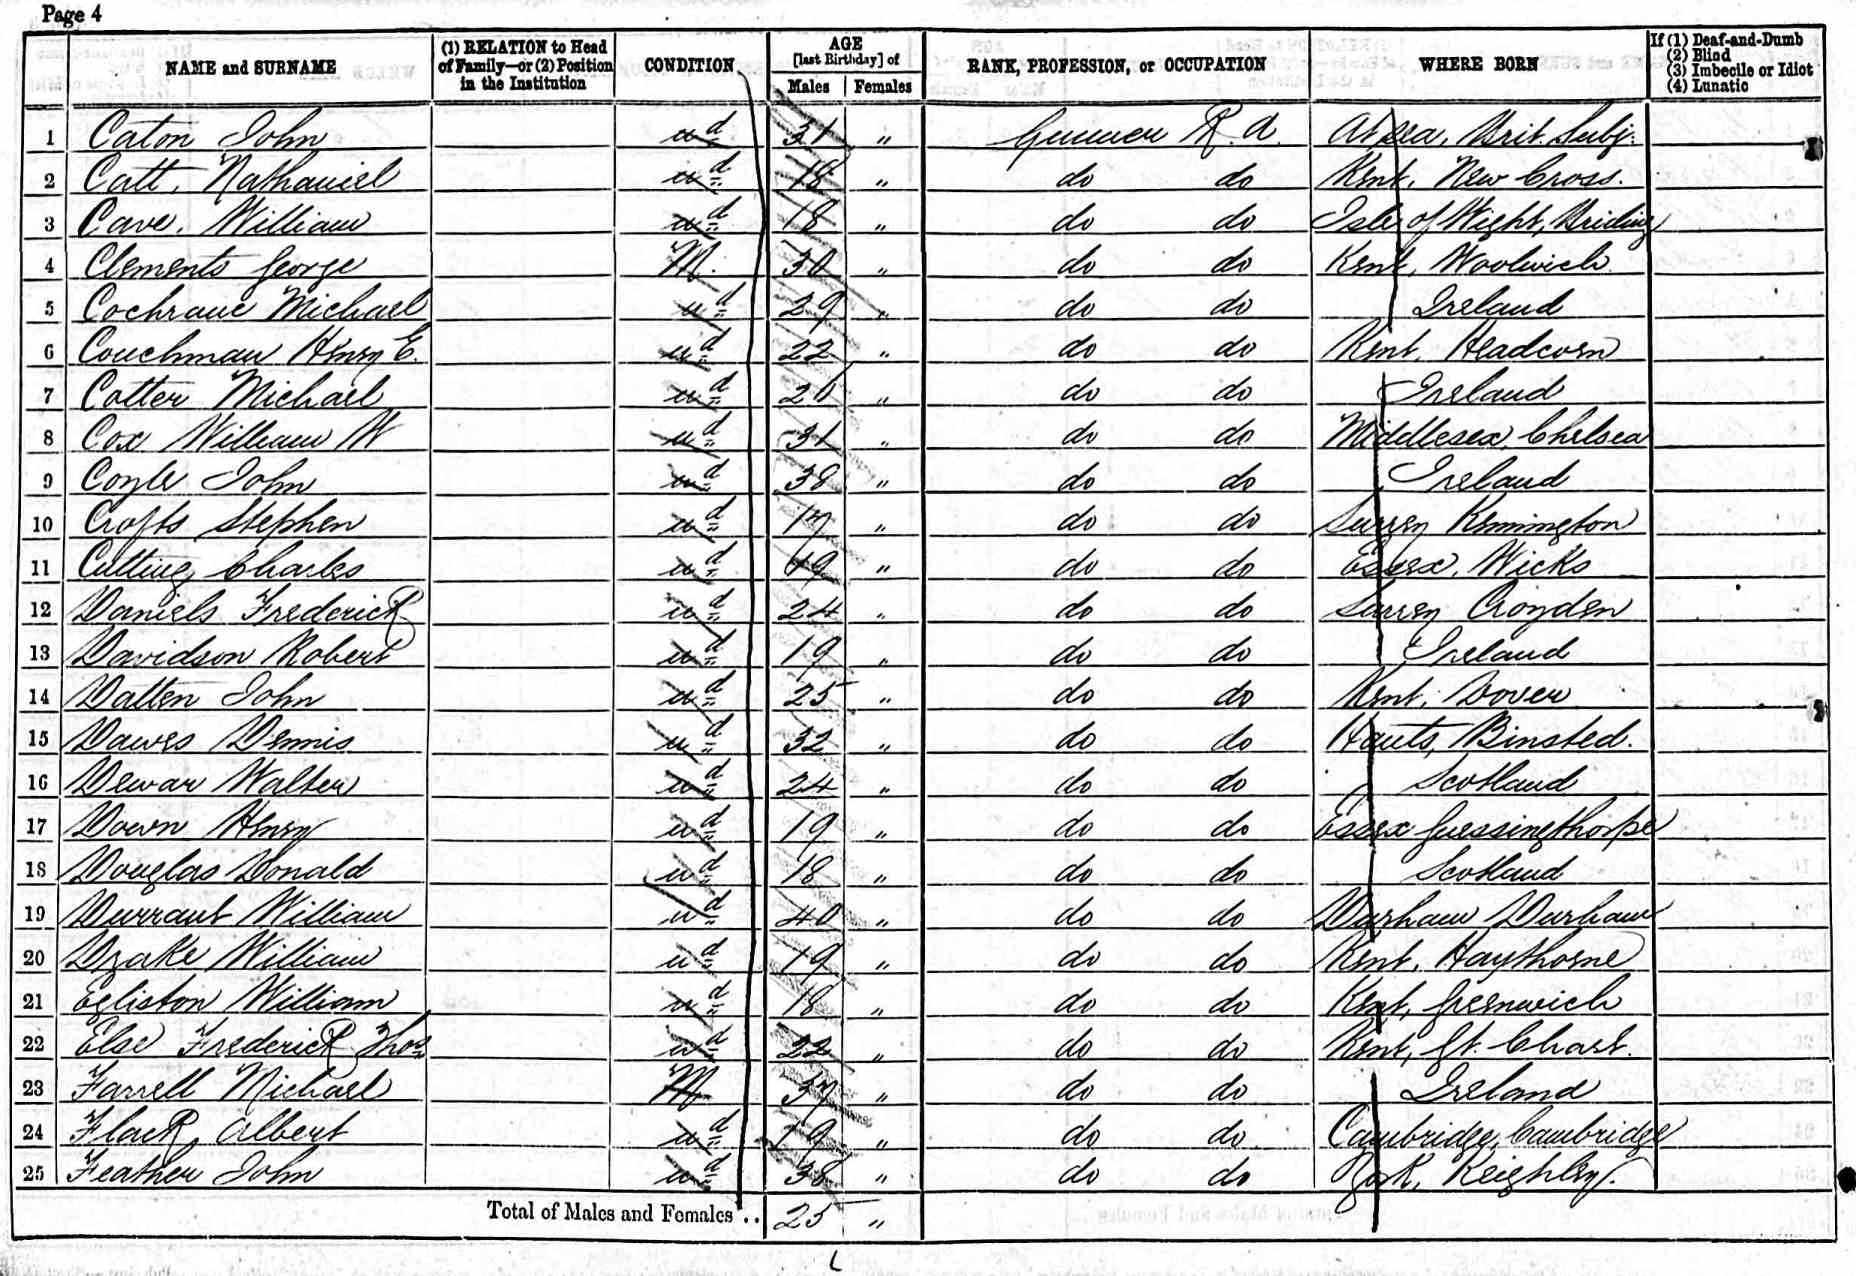 Page 4
NAME and SURNAME (1) RELATION to Head of Family—or (2) Position in the Institution CONDITION AGE [last Birthday] of Males Females RANK, PROFESSION, or OCCUPATION WHERE BORN If (1) Deaf-and-Dumb (2) Blind (3) Imbecile or Idiot (4) Lunatic
1 Caton John u d 31 " Gunner R. A. At Sea, Brit. Subj.
2 Catt, Nathaniel u d 18 " do do Kent, New Cross.
3 Cave, William u d 18 " do do Isle of Wight,
4 Clements George M. 30 " do do Kent, Woolwich
5 Cochrane Michael u d 29 " do do Ireland
6 Couchman Henry E. u d 22 " do do Kent, Headcorn
7 Cotter Michael u d 20 " do do Ireland
8 Cox William W u d 31 " do do Middlesex, Chelsea
9 Coyle John u d 38 " do do Ireland
10 Crofts Stephen u d 19 " do do Surrey Kennington
11 Cutting Charles u d 19 " do do Essex, Wicks
12 Daniels Frederick u d 24 " do do Surrey Croyden
13 Davidson Robert u d 19 " do do Ireland
14 Datten John u d 25 " do do Kent, Dover
15 Dawes Dennis u d 32 " do do Hants, Binsted.
16 Dewar Walter u d 24 " do do Scotland
17 Down Henry u d 19 " do do Essex Guessingthorpe
18 Douglas Donald u d 18 " do do Scotland
19 Durrant William u d 40 " do do Durham Durham
20 Drake William u d 19 " do do Kent, Haythorne
21 Egliston William u d 18 " do do Kent, Greenwich
22 Else Frederick Thos u d 22 " do do Kent, Gt. Chart.
23 Farrell Michael M 37 " do do Ireland
24 Flack, Albert u d 19 " do do Cambridge, Cambridge
25 Feather John u d 38 " do do York, Keighley.
Total of Males and Females .. 25 "